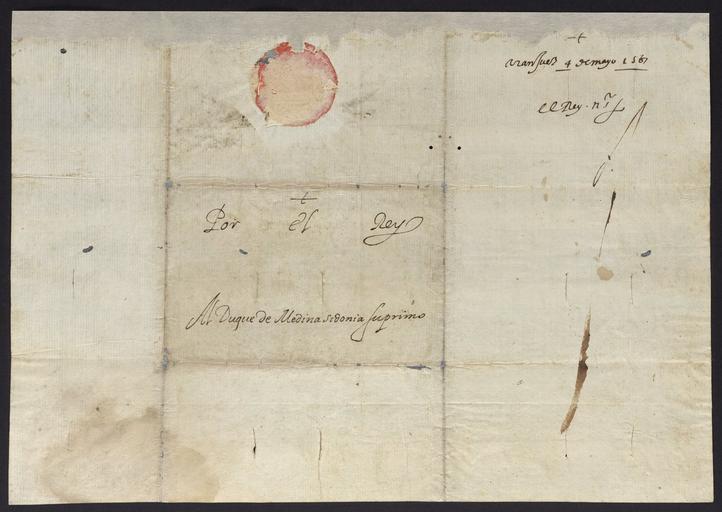 Aranjuez 4 de mayo 1587
el Rey nr̃o s.
Por el Rey
Al Duque de Medina sidonia su primo